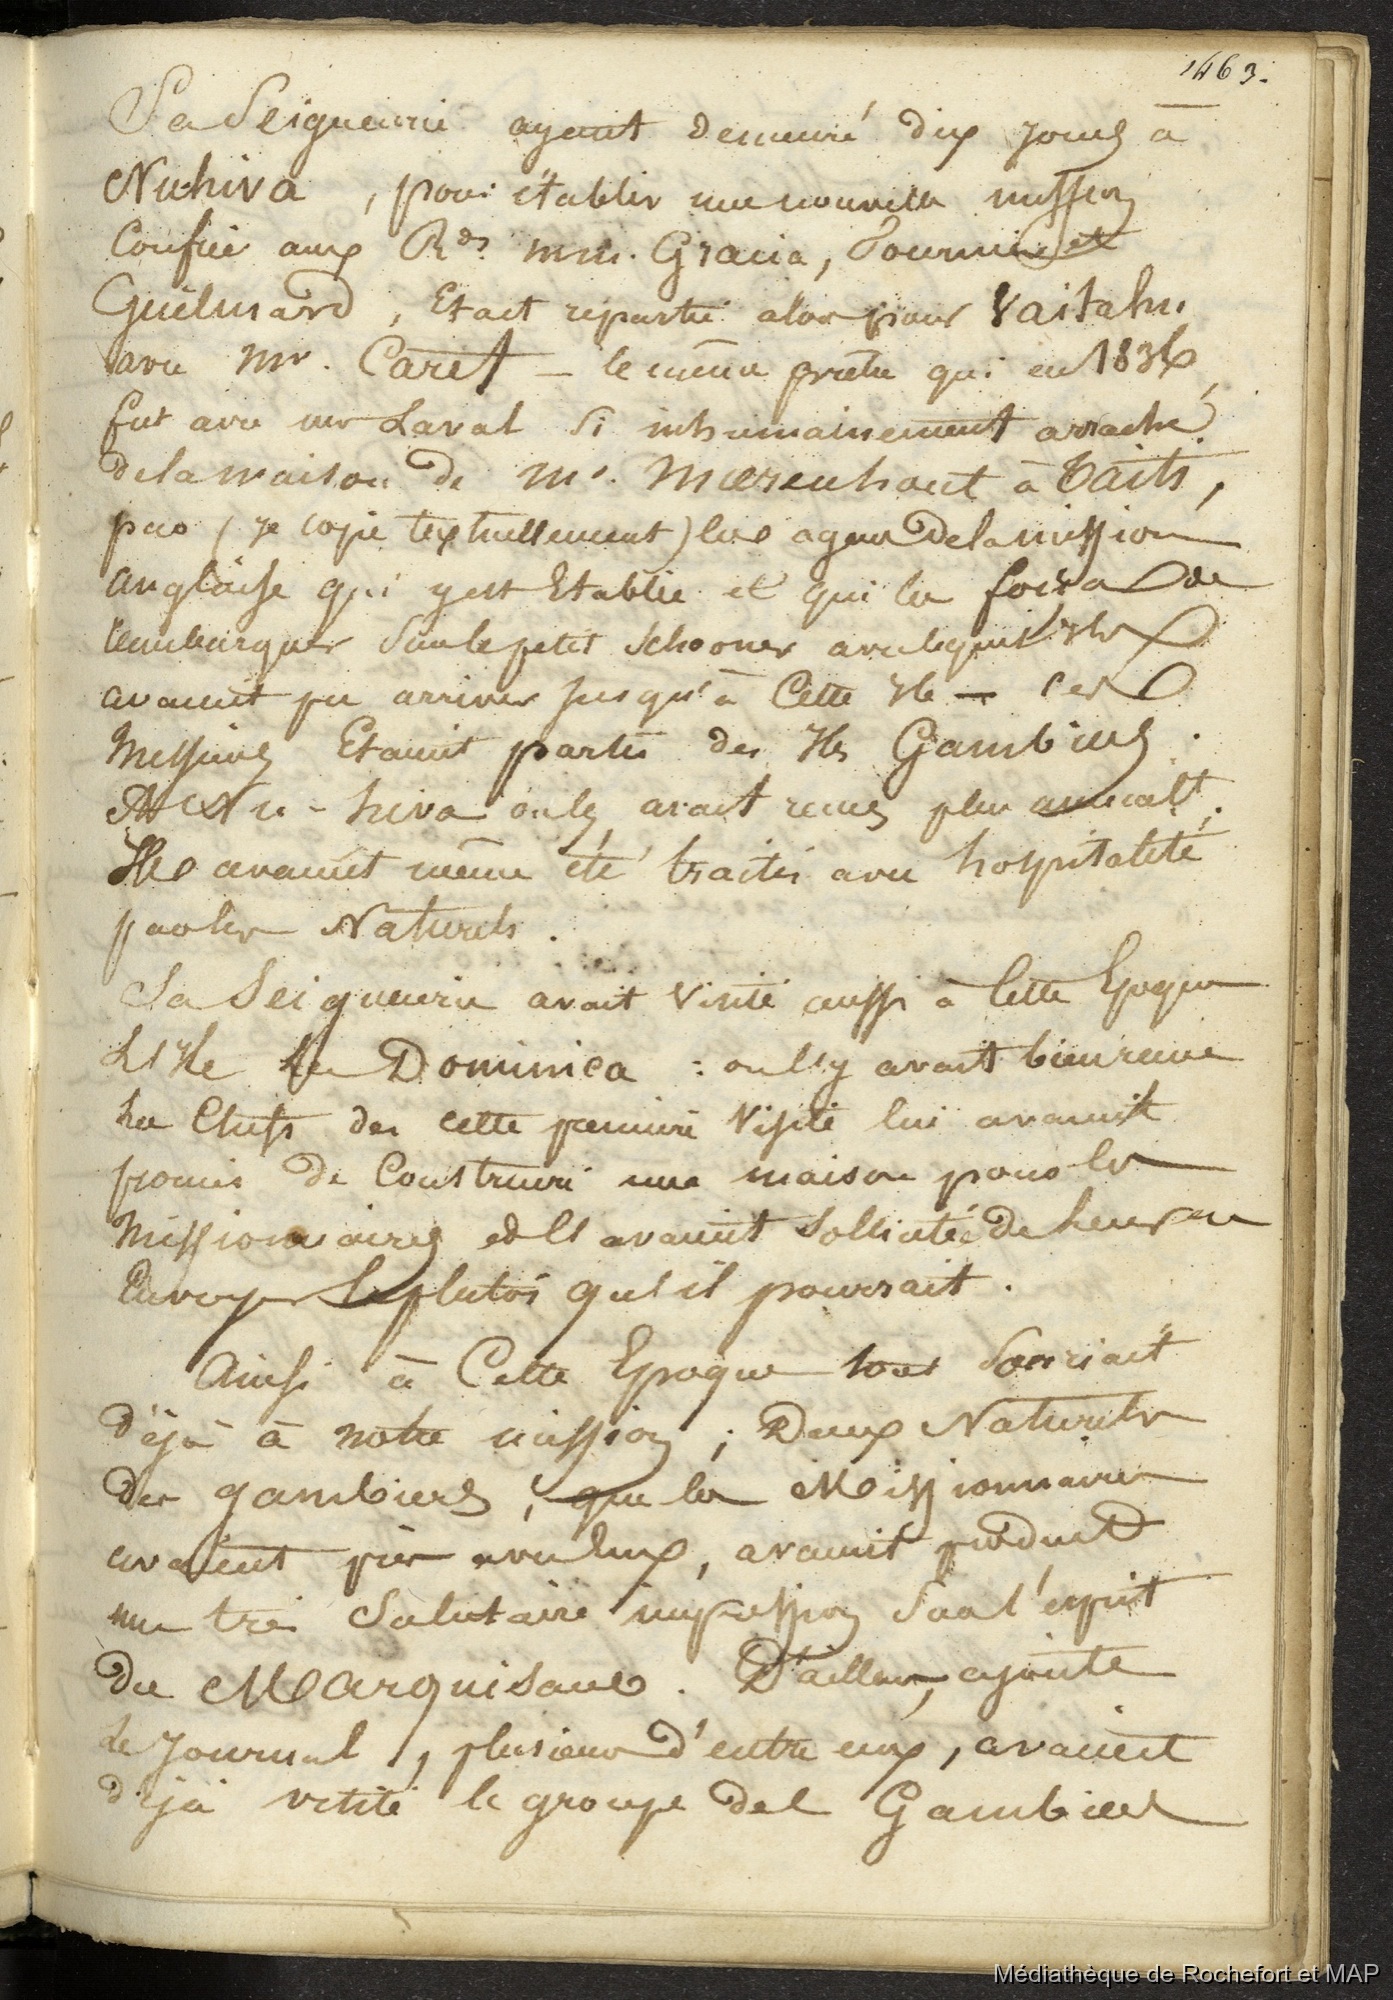 463.
Sa Seigneurie ayant demeuré dix jours à
Nuhiva, pour établir une nouvelle mission
Confiée aux Rds mm. Gracia, Fournier et
Guilmard, Etait repartie alors pour Vaitahu
avec Mr. Caret — le même prêtre qui en 1836
fut avec mr Laval si inhumainement arraché
de la maison de Mr. Mœrenhout à Taiti,
par (je copie textuellement) les agens de la mission
anglaise qui y est Etablie et qui les força de
rembarquer sur le petit schooner avec lequel ils
avaient pu arriver jusqu'à Cette Ile — Ces
Messieurs Etaient partis des Iles Gambiers.
A Nu-hiva on les avait reçus
Ils avaient même été traités avec hospitalité
par les Naturels.
Sa Seigneurie avait visité aussi à Cette Epoque
L'Ile de Dominica : on l'y avait bien reçue
les Chefs dès cette première visite lui avaient
promis de Construire une maison pour les
Missionnaires et ils avaient sollicité de leur en
Envoyer le plutôt qu'il pourrait.
Ainsi à Cette Epoque tout souriait
déjà à notre mission ; Deux Naturels
des gambiers, que les Missionnaires
avaient pris avec Eux, avaient produit
une très salutaire impression sur l'esprit
des Marquisans. D'ailleurs, ajoute
le journal, plusieurs d'entre eux, avaient
déjà visité le groupe des Gambiers
Médiathèque de Rochefort et MAP